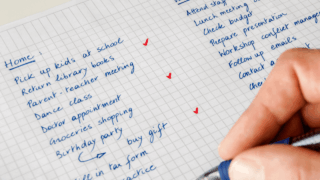 Home:
Pick up kids at school
Return library books
Parent-teacher meeting
Dance class
Doctor appointment
Groceries shopping
Birthday party
buy gift
in tax form
Attend staff
Lunch meeting
Check budget
Prepare presentation
Workshop
Follow up emails
Contact a